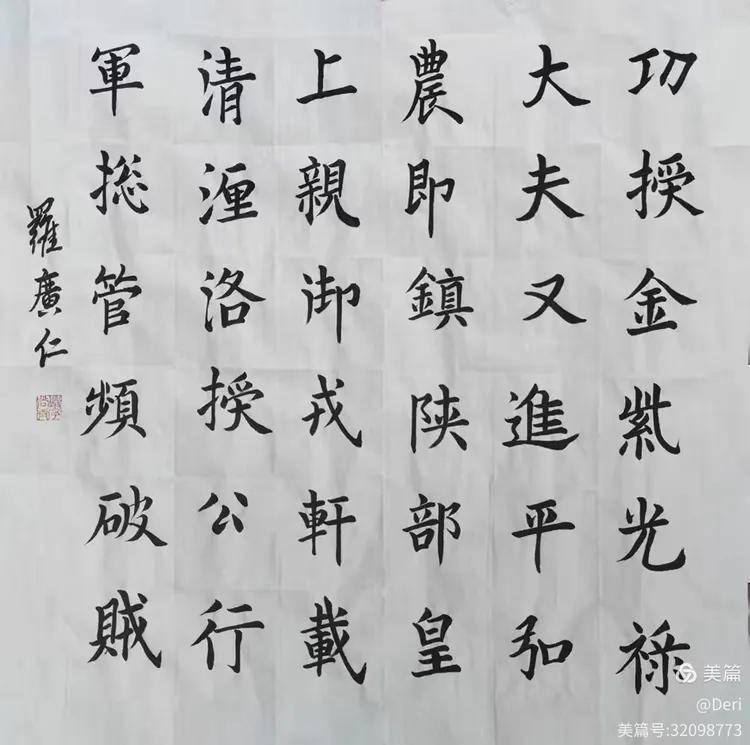 功授金紫光祿
大夫又進平弘
農即鎮陝部皇
上親御戎軒載
清瀍洛授公行
軍捴管頻破賊
羅廣仁
美篇
@Deri
美篇号:32098773